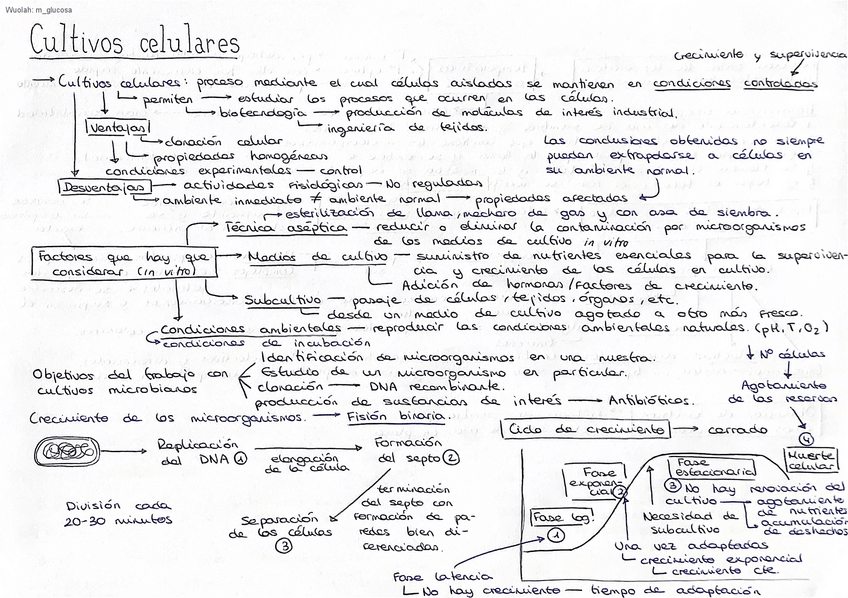 Wuolah: m_glucosa
Cultivos celulares
Crecimiento y supervivencia
→ Cultivos celulares: proceso mediante el cual células aisladas se mantienen en condiciones controladas
permiten → estudiar los procesos que ocurren en las células.
biotecnología → producción de moléculas de interés industrial.
ingeniería de tejidos.
Ventajas
clonación celular
propiedades homogéneas
condiciones experimentales — control
Las conclusiones obtenidas no siempre
pueden extrapolarse a células en
su ambiente normal.
Desventajas → actividades fisiológicas — No reguladas
ambiente inmediato ≠ ambiente normal → propiedades afectadas
esterilización de llama, mechero de gas y con asa de siembra.
Técnica aséptica — reducir o eliminar la contaminación por microorganismos
de los medios de cultivo in vitro
Factores que hay que
considerar (in vitro)
Medios de cultivo — suministro de nutrientes esenciales para la superviven-
cia y crecimiento de las células en cultivo.
Adición de hormonas/factores de crecimiento.
Subcultivo — pasaje de células, tejidos, órganos, etc.
desde un medio de cultivo agotado a otro más fresco.
Condiciones ambientales — reproducir las condiciones ambientales naturales. (pH, T, O₂)
condiciones de incubación
Objetivos del trabajo con
cultivos microbianos
Identificación de microorganismos en una muestra.
Estudio de un microorganismo en particular.
clonación → DNA recombinante.
producción de sustancias de interés → Antibióticos.
↓ Nº células
Agotamiento
de las reservas
Crecimiento de los microorganismos. → Fisión binaria.
Replicación
del DNA ①
elongación
de la célula
Formación
del septo ②
terminación
del septo con
formación de pa-
redes bien di-
ferenciadas.
Separación
de las células
③
División cada
20-30 minutos
Ciclo de crecimiento → cerrado
④
Muerte
celular
Fase
exponen-
cial ②
Fase
estacionaria
③ No hay renovación del
cultivo → agotamiento
de nutrientes
acumulación
de deshechos
Fase log.
①
Necesidad de
subcultivo
Una vez adaptadas
crecimiento exponencial
crecimiento cte.
Fase latencia
No hay crecimiento — tiempo de adaptación